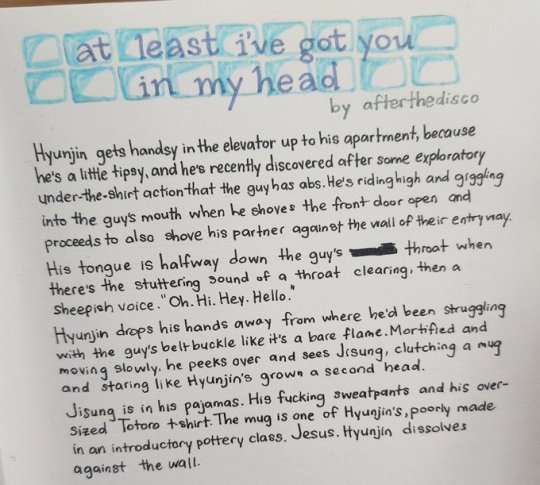 at least i've got you
in my head
by afterthedisco
Hyunjin gets handsy in the elevator up to his apartment, because
he's a little tipsy, and he's recently discovered after some exploratory
under-the-shirt action that the guy has abs. He's riding high and giggling
into the guy's mouth when he shoves the front door open and
proceeds to also shove his partner against the wall of their entryway.
His tongue is halfway down the guy's throat when
there's the stuttering sound of a throat clearing, then a
sheepish voice. "Oh. Hi. Hey. Hello."
Hyunjin drops his hands away from where he'd been struggling
with the guy's belt buckle like it's a bare flame. Mortified and
moving slowly, he peeks over and sees Jisung, clutching a mug
and staring like Hyunjin's grown a second head.
Jisung is in his pajamas. His fucking sweatpants and his over-
sized Totoro t-shirt. The mug is one of Hyunjin's, poorly made
in an introductory pottery class. Jesus. Hyunjin dissolves
against the wall.